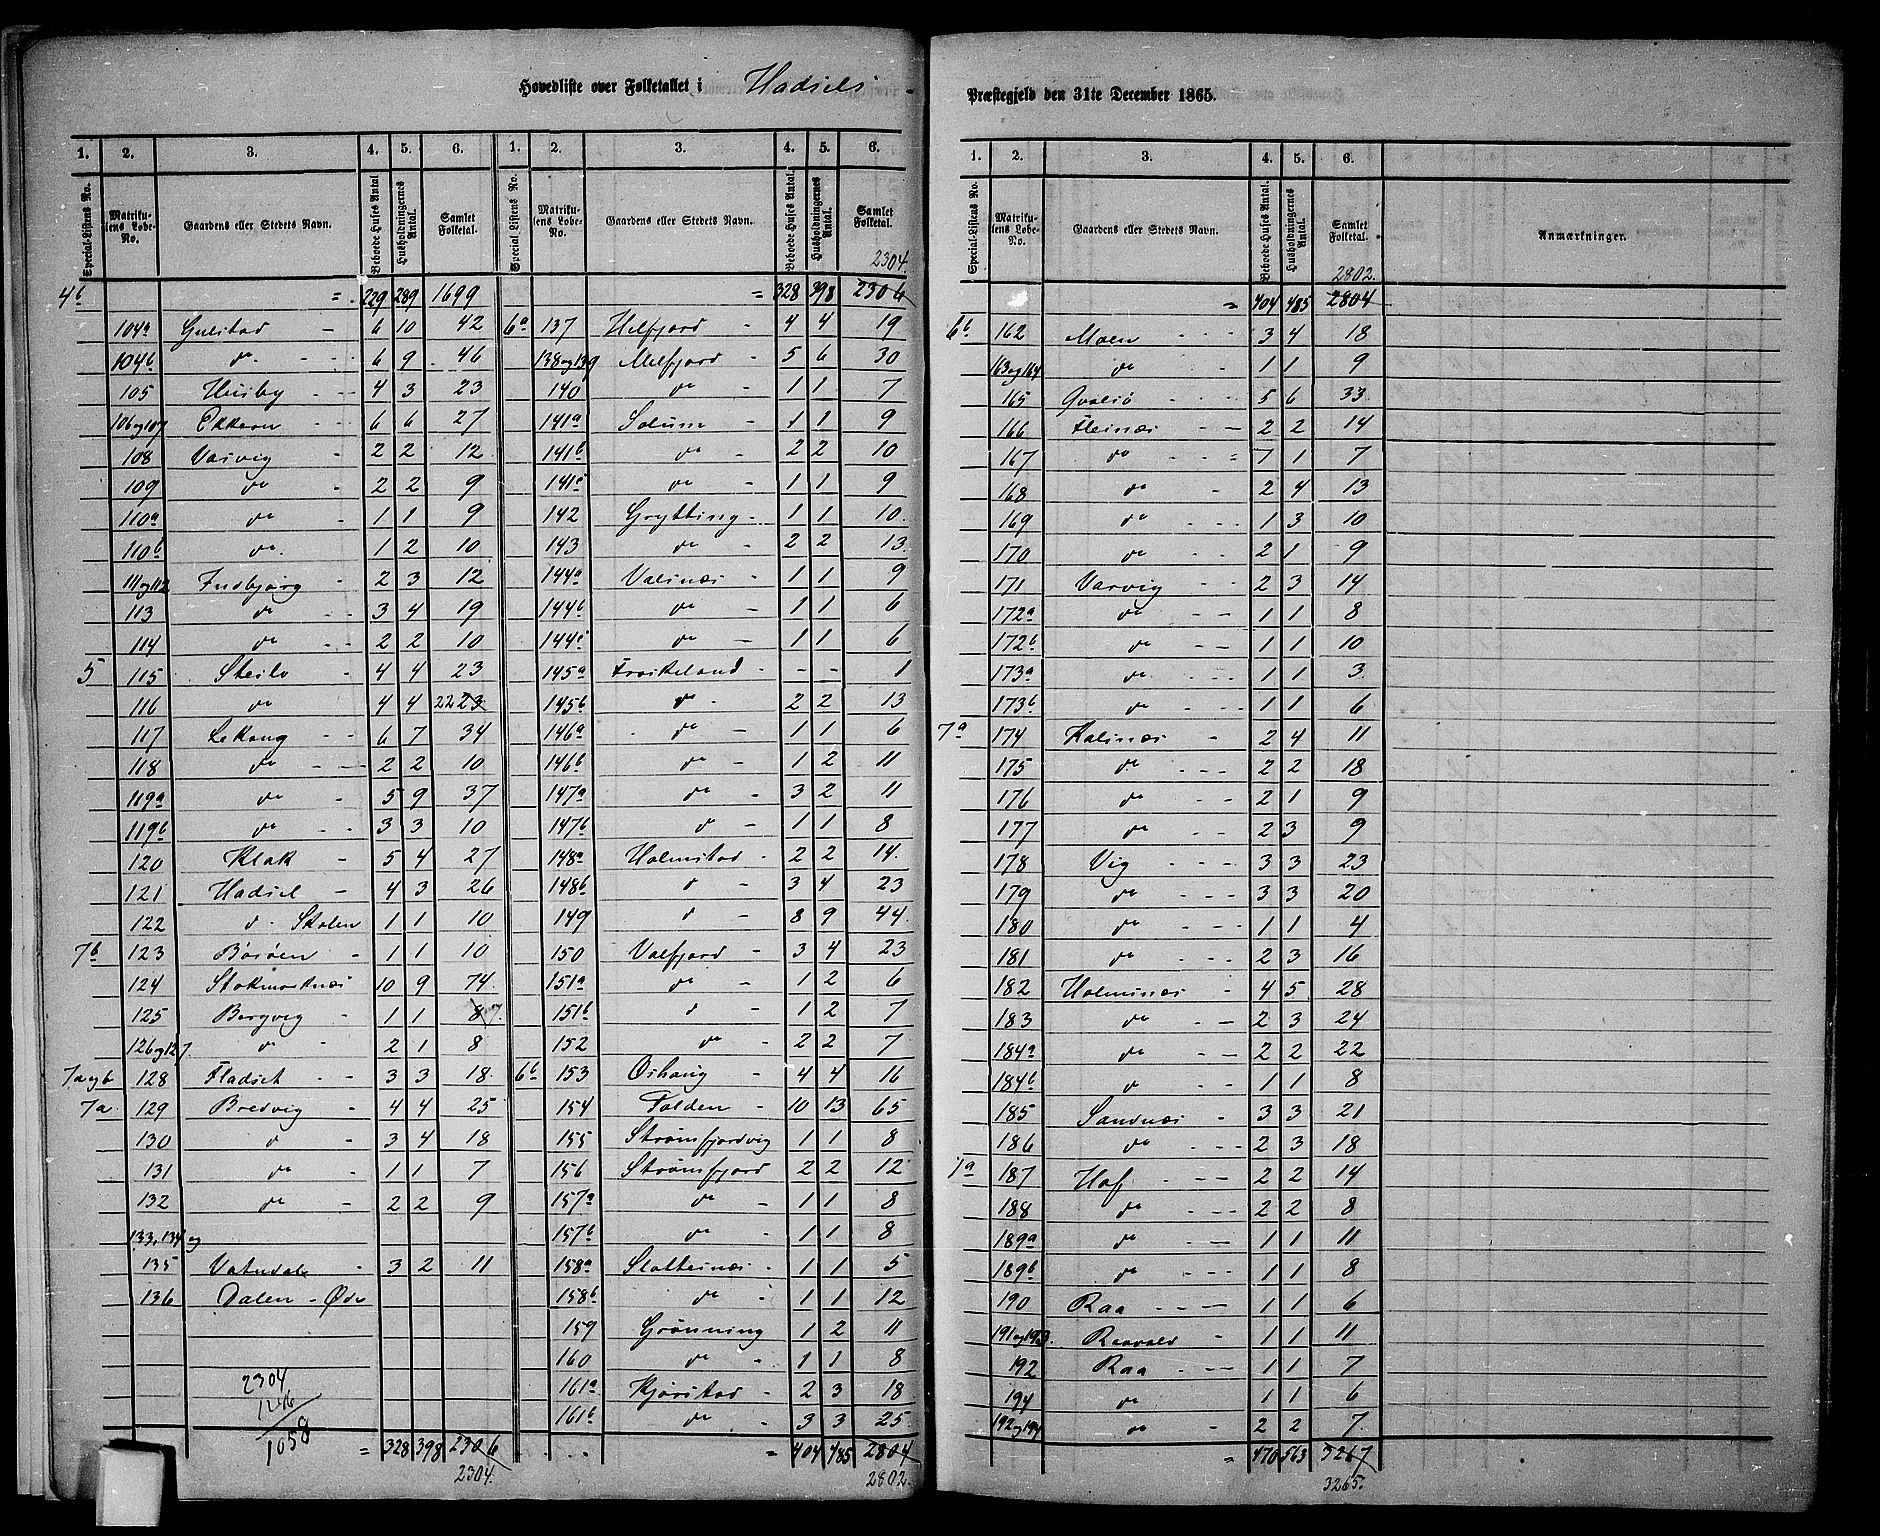 Hovedliste over Folketallet i Hadsels
Præstegjeld den 31te December 1865.
1. 2. 3. 4. 5. 6. 1. 2. 3. 4. 5. 6.
Special-Listens No. Matrikulens Løbe-No. Gaardens eller Stedets Navn. Beboede Huses Antal Husholdningernes Antal. Samlet Folketal. Special Listens No. Matrikulens Løbe-No. Gaardens eller Stedets Navn. Beboede Huses Antal. Husholdningernes Antal. Samlet Folketal.
2304.
4b = 229 289 1699 = 328 398 2306
104a Gulstad 6 10 42 6a 137 Melfjord 4 4 19
104b do 6 9 46 138 og 139 Melfjord 5 6 30
105 Husby 4 3 23 140 do 1 1 7
106 og 107 Ekkeren 6 6 27 141a Solum 1 1 9
108 Vasvig 2 2 12 141b do 2 2 10
109 do 2 2 9 141c do 1 1 9
110a do 1 1 9 142 Grytting 1 1 10
110b do 1 2 10 143 do 2 2 13
111 og 112 Indbjørg 2 3 12 144a Valsnæs 1 1 9
113 do 3 4 19 144b do 1 1 6
114 do 2 2 10 144c do 1 1 6
5 115 Steilo 4 4 23 145a Frøskeland - - 1
116 do 4 4 22 23 145b do 2 2 13
117 Lekang 6 7 34 146a do 1 1 6
118 do 2 2 10 146b do 1 2 11
119a do 5 9 37 147a do 3 2 11
119b do 3 3 10 147b d 1 1 8
120 Klak 5 4 27 148a Holmstad 2 2 14
121 Hadsel 4 3 26 148b d 3 4 23
122 d Skolen 1 1 10 149 d 8 9 44
7b 123 Børøen 1 1 10 150 Valfjord 3 4 23
124 Stokmarknæs 10 9 74 151a do 1 2 6
125 Bergvig 1 1 8 7 151b d 1 2 7
126 og 127 do 2 1 8 152 do 2 2 7
7a og b 128 Fladset 3 3 18 6b 153 Oshaug 4 4 16
7a 129 Bredvig 4 4 25 154 Folden 10 13 65
130 d 3 4 18 155 Strømfjordvig 1 1 8
131 do 1 1 7 156 Strømfjord 2 2 12
132 do 2 2 9 157a do 1 1 8
133, 134 og 157b do 1 1 8
135 Vatndal 3 2 11 158a Slottesnæs 1 1 5
136 Dalen - Øde 158b do 1 1 12
159 Grønning 1 2 11
160 do 1 1 8
161a Kjørstad 2 3 18
161b do 3 3 25
2304
1246
1058
= 328 398 2306 = 404 485 2804
2304. 2802.
1. 2. 3. 4. 5. 6.
Special-Listens No. Matrikulens Løbe-No. Gaardens eller Stedets Navn. Beboede Huses Antal. Husholdningernes Antal. Samlet Folketal. Anmærkninger.
2802.
= 404 485 2804
6b 162 Moen 3 4 18
163 og 164 do 1 1 9
165 Qvalsø 5 6 33
166 Fleinæs 2 2 14
167 do 1 1 7
168 do 2 4 13
169 do 1 3 10
170 do 2 1 9
171 Varvig 2 3 14
172a do 1 1 8
172b do 1 1 10
173a do 1 1 3
173b do 1 1 6
7a 174 Kalsnæs 2 4 11
175 do 2 2 18
176 do 2 1 9
177 do 2 3 9
178 Vig 3 3 23
179 do 3 3 20
180 do 1 1 4
181 do 2 3 16
182 Holmsnæs 4 5 28
183 do 2 3 24
184a do 2 2 22
184b d 1 1 8
185 Sandnæs 3 3 21
186 do 2 3 18
1a 187 Hof 2 2 14
188 do 2 2 8
189a do 1 1 11
189b do 1 1 8
190 Raa 1 1 6
191 og 193 Raavold 1 1 11
192 Raa 1 1 7
194 do 1 1 6
192 og 194 do 2 2 7
= 470 563 3267
3265.